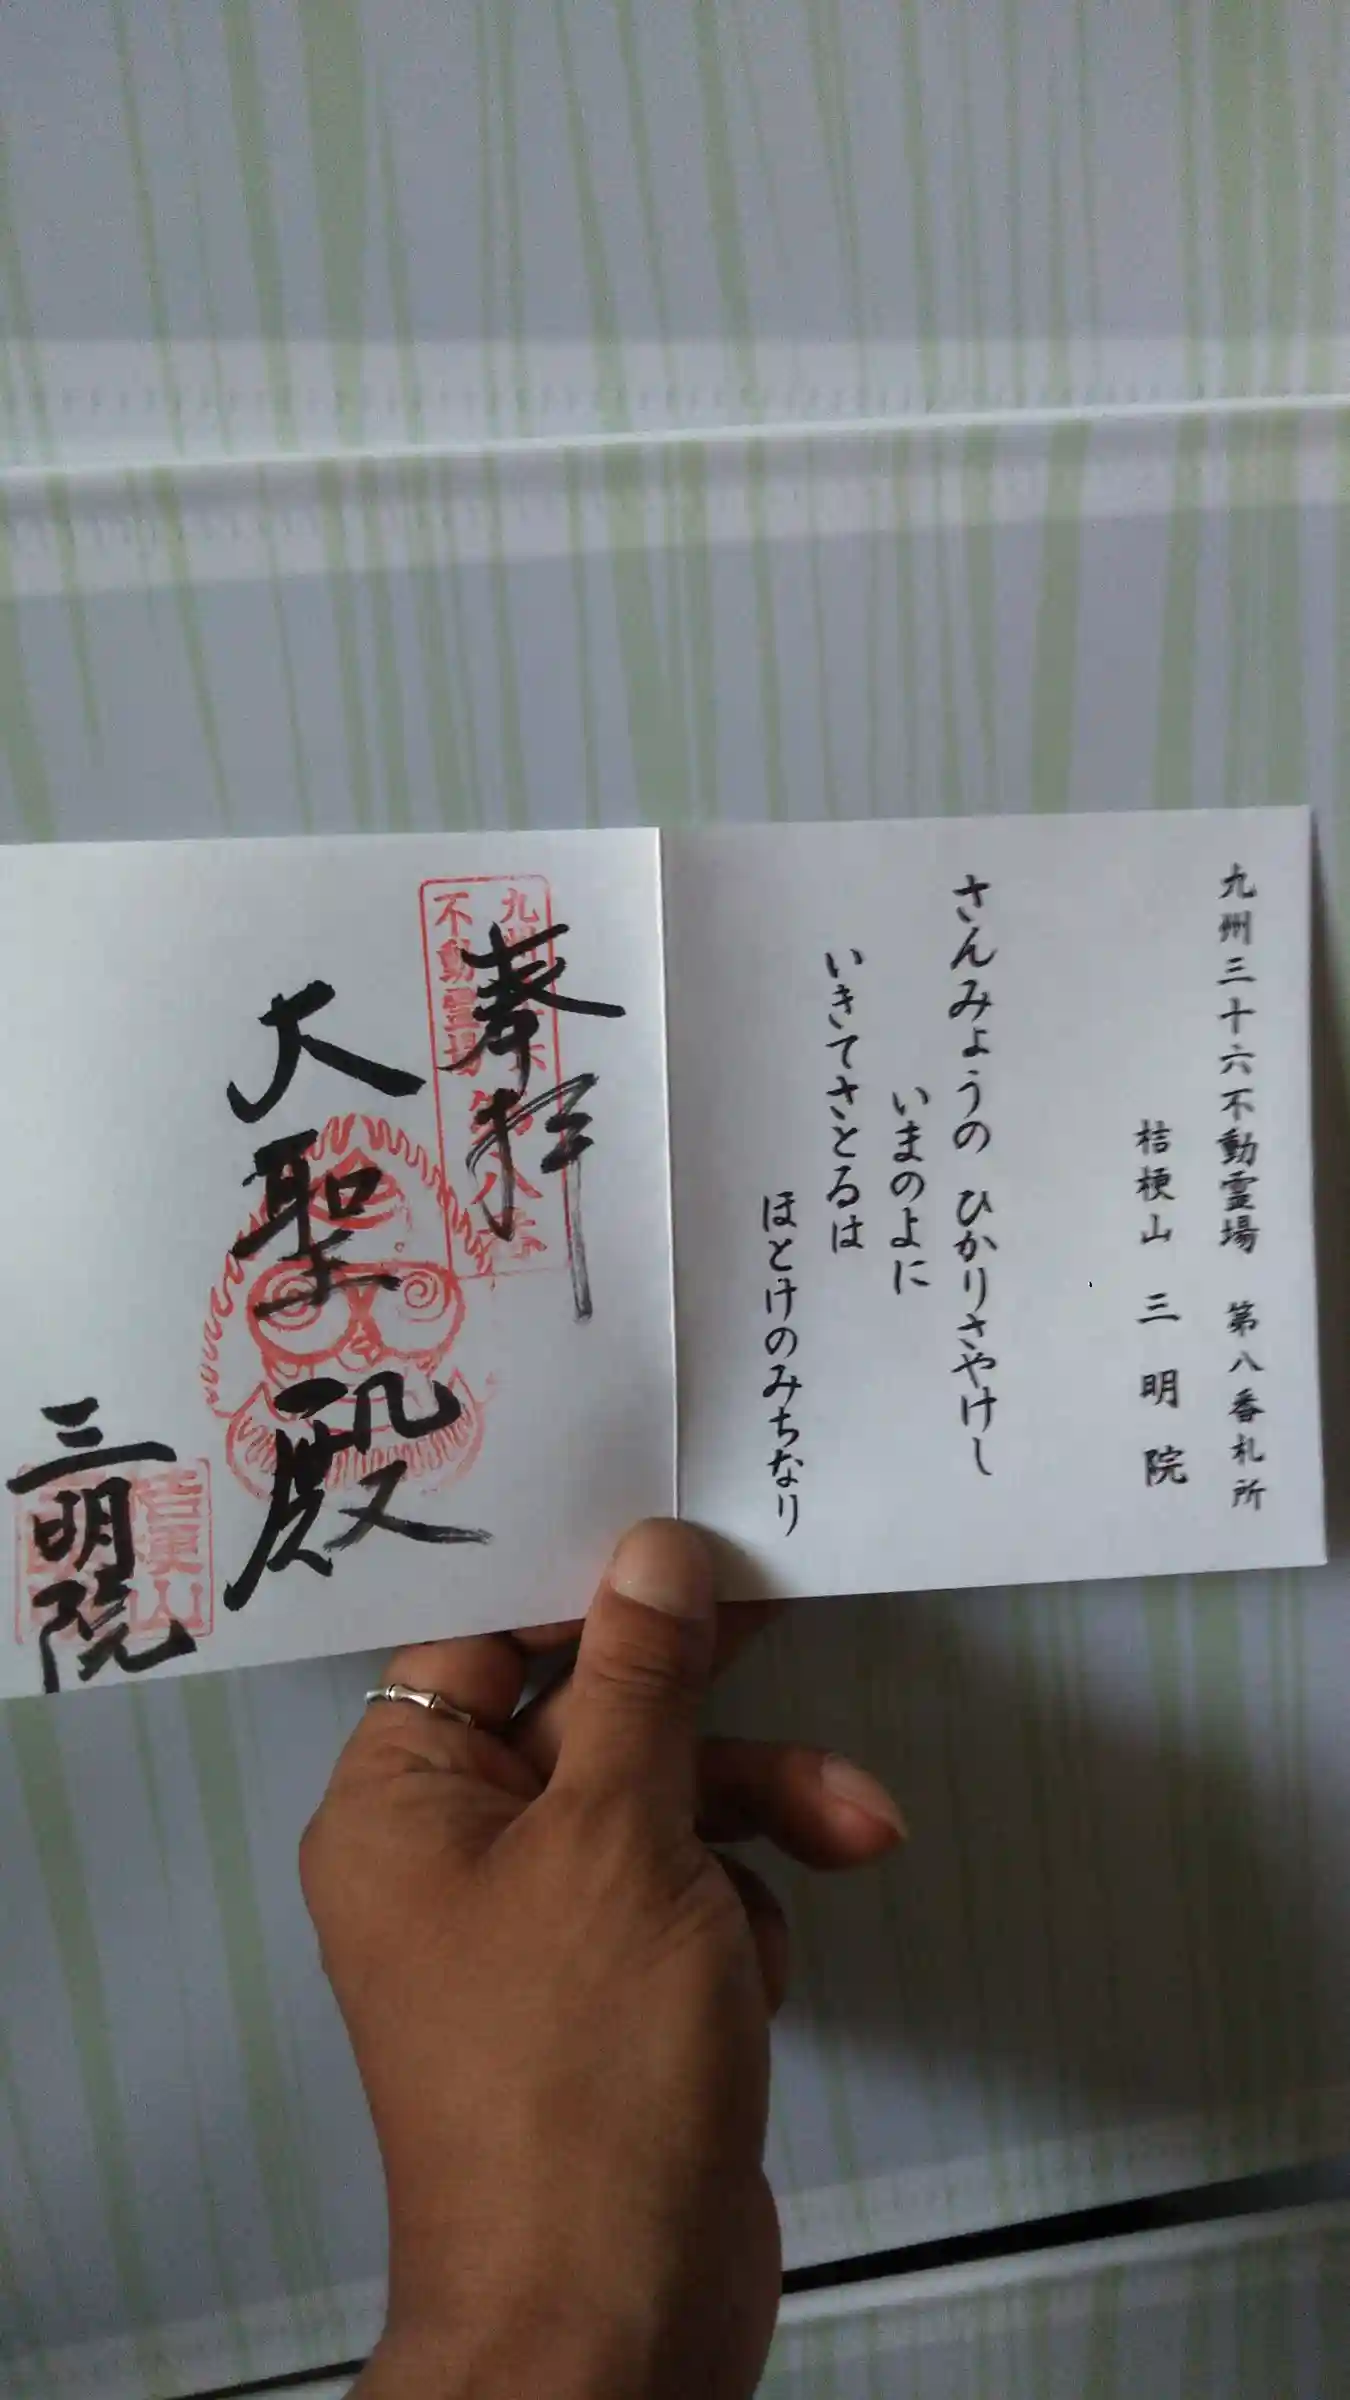 九州三十六不動霊場 第八番札所
桔梗山 三明院
さんみょうの ひかりさやけし
いまのよに
いきてさとるは
ほとけのみちなり
奉拝
不動霊場
第八番
大聖殿
三明院